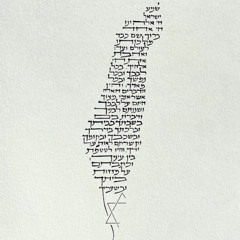 שמע
ישראל
יי אלהינו
יי אחד
ברוך שם כבד
לעולם ועד
ואהבת
את יי
אלהיך בכל
לבבך ובכל
נפשך ובכל
מאדך והיו
הדברים האלה
אשר אנכי מצוך
היום על לבבך
ושננתם לבניך
ודברת בם
בשבתך בביתך
ובלכתך בדרך
ובשכבך ובקומך
וקשרתם לאות על
ידך והיו לטטפת
בין עיניך
וכתבתם
על מזזות
ביתך
ובשעריך